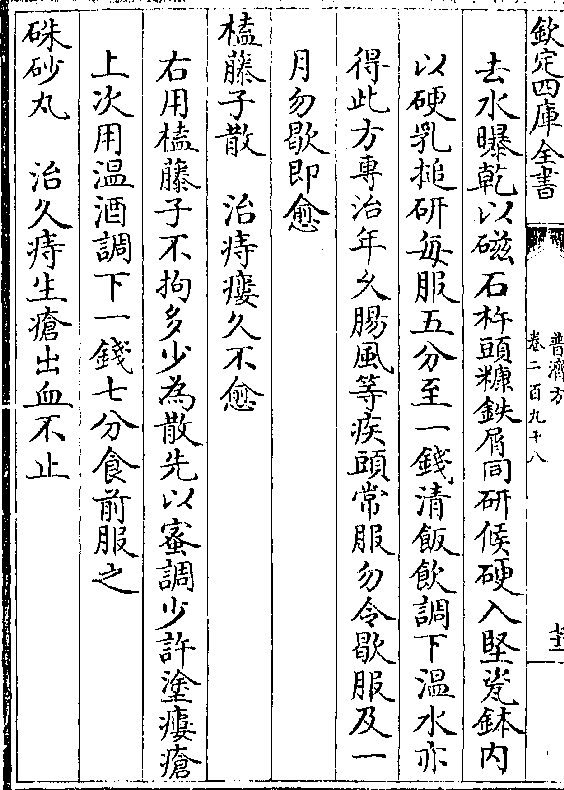 欽定四庫全書
普濟方
卷二百九十八
去水曝乾以磁石杵頭糠鉄屑同研候硬入堅瓷鉢内
以硬乳搥研每服五分至一錢清飯飲調下温水亦
得此方專治年久腸風等疾頭常服勿令歇服及一
月勿歇即愈
榼藤子散　治痔瘻久不愈
右用榼藤子不拘多少為散先以蜜調少許塗瘻瘡
上次用温酒調下一錢七分食前服之
硃砂丸　治久痔生瘡出血不止